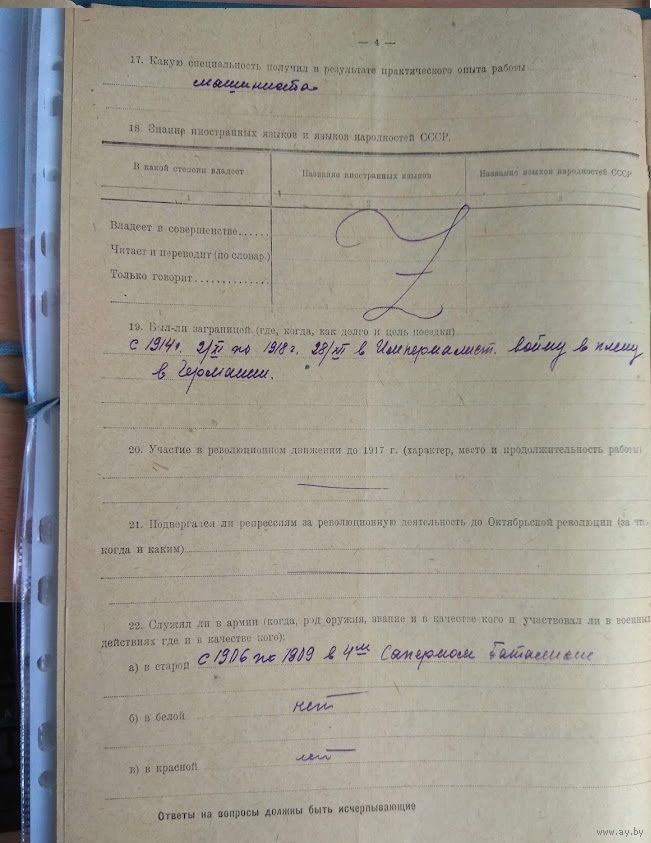 — 4 —
17. Какую специальность получил в результате практического опыта работы
машиниста
18. Знание иностранных языков и языков народностей СССР.
В какой степени владеет Название иностранных языков Название языков народностей СССР
1 2 3
Владеет в совершенстве......
Читает и переводит (по словар.)
Только говорит..............
19. Был-ли заграницей (где, когда, как долго и цель поездки)
с 1914г. 2/XI по 1918г. 28/XI в Империалист. войну в плену
в Германии.
20. Участие в революционном движении до 1917 г. (характер, место и продолжительность работы)
21. Подвергался ли репрессиям за революционную деятельность до Октябрьской революции (за что,
когда и каким)
22. Служил ли в армии (когда, род оружия, звание и в качестве кого и участвовал ли в военных
действиях где и в качестве кого):
а) в старой с 1906 по 1909 в 4м Саперном баталионе
б) в белой нет
в) в красной нет
Ответы на вопросы должны быть исчерпывающие
www.ay.by